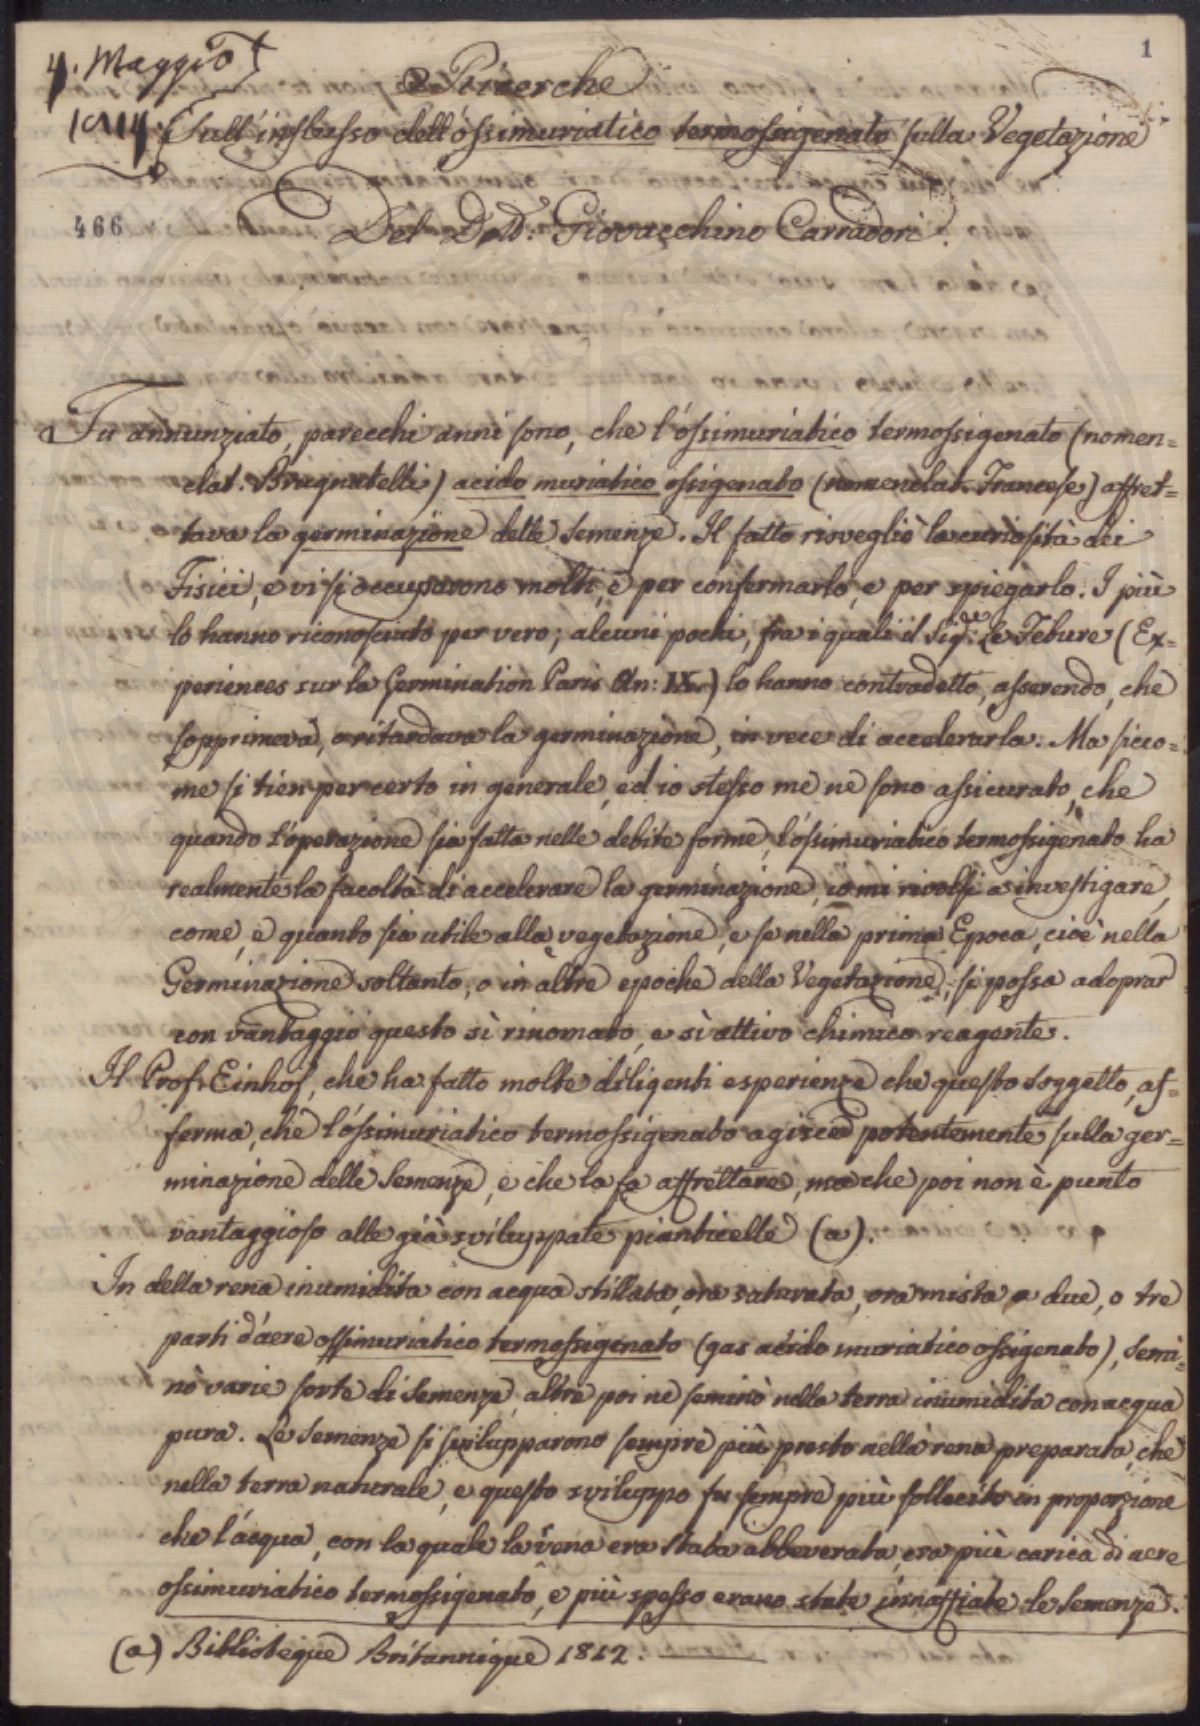 4. Maggio
1
Ricerche
1814. Sull'influsso dell'ossimuriatico termossigenato sulla Vegetazione
466
Del D.: Giovacchino Carradori.
Fu annunziato, parecchi anni sono, che l'ossimuriatico termossigenato (nomen=
clat. Brugnatelli) acido muriatico ossigenato (nomenclat. Francese) affret=
tava la germinazione delle Semenze. Il fatto risvegliò la curiosità dei
Fisici, e vi si occuparono molti, e per confermarlo, e per spiegarlo. I più
lo hanno riconosciuto per vero; alcuni pochi, fra i quali il Sig.de Le Febure (Ex=
periences sur la Germination Paris An: IX.) lo hanno contradetto, asserendo, che
sopprimeva, o ritardava la germinazione, in vece di accelerarla. Ma sicco=
me si tien per certo in generale, ed io stesso me ne sono assicurato, che
quando l'operazione sia fatta nelle debite forme, l'ossimuriatico termossigenato ha
realmente la facoltà di accelerare la germinazione, io mi rivolsi a investigare,
come, e quanto sia utile alla vegetazione, e se nella prima Epoca, cioè nella
Germinazione soltanto, o in altre epoche della Vegetazione, si possa adoprar
con vantaggio questo sì rinomato, e sì attivo chimico reagente.
Il Prof. Einhof, che ha fatto molte diligenti esperienze che questo soggetto, af=
ferma, che l'ossimuriatico termossigenato agisce potentemente sulla ger=
minazione delle Semenze, e che la fa affrettare, ma che poi non è punto
vantaggioso alle già sviluppate pianticelle (a).
In della rena inumidita con acqua stillata, ora saturata, ora mista a due, o tre
parti d'aere ossimuriatico termossigenato (gas acido muriatico ossigenato), semi=
nò varie sorte di Semenze, altre poi ne seminò nella terra inumidita con acqua
pura. Le Semenze si svilupparono sempre più presto nella rena preparata, che
nella terra naturale, e questo sviluppo fu sempre più sollecito in proporzione
che l'acqua, con la quale la rena era stata abbeverata, era più carica di aere
ossimuriatico termossigenato, e più spesso erano state innaffiate le Semenze.
(a) Biblioteque Britannique 1812.